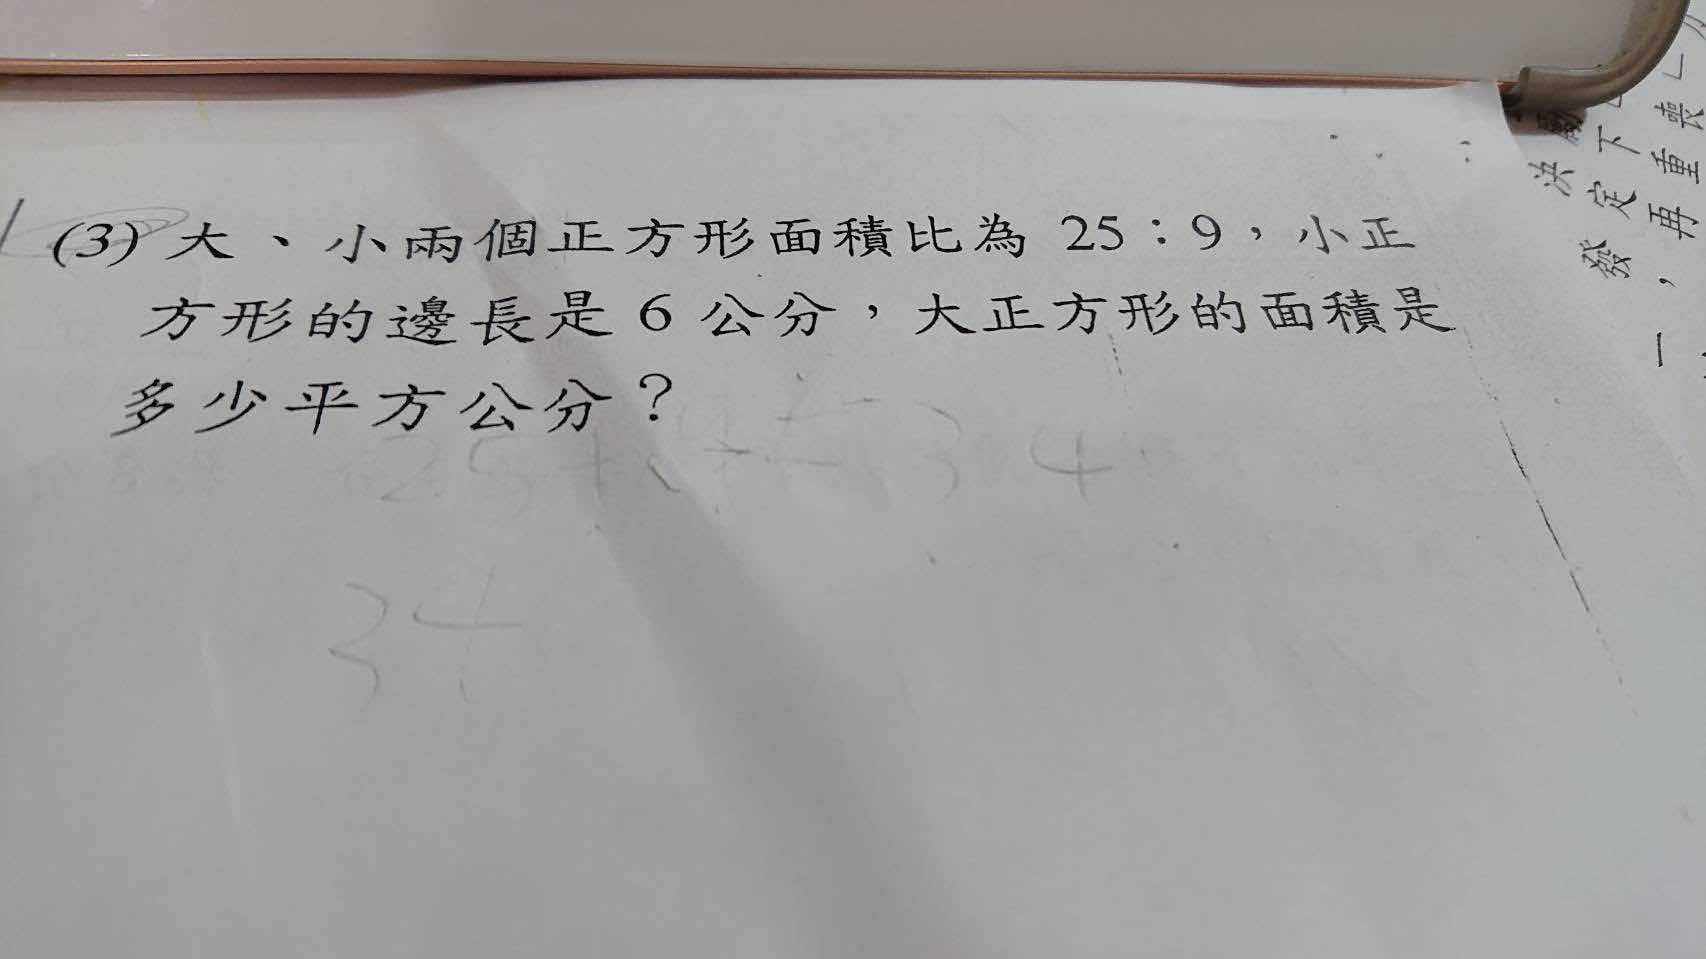 (3) 大、小兩個正方形面積比為 25：9，小正
方形的邊長是 6 公分，大正方形的面積是
多少平方公分？
34
決定發
下
重再，一
喪